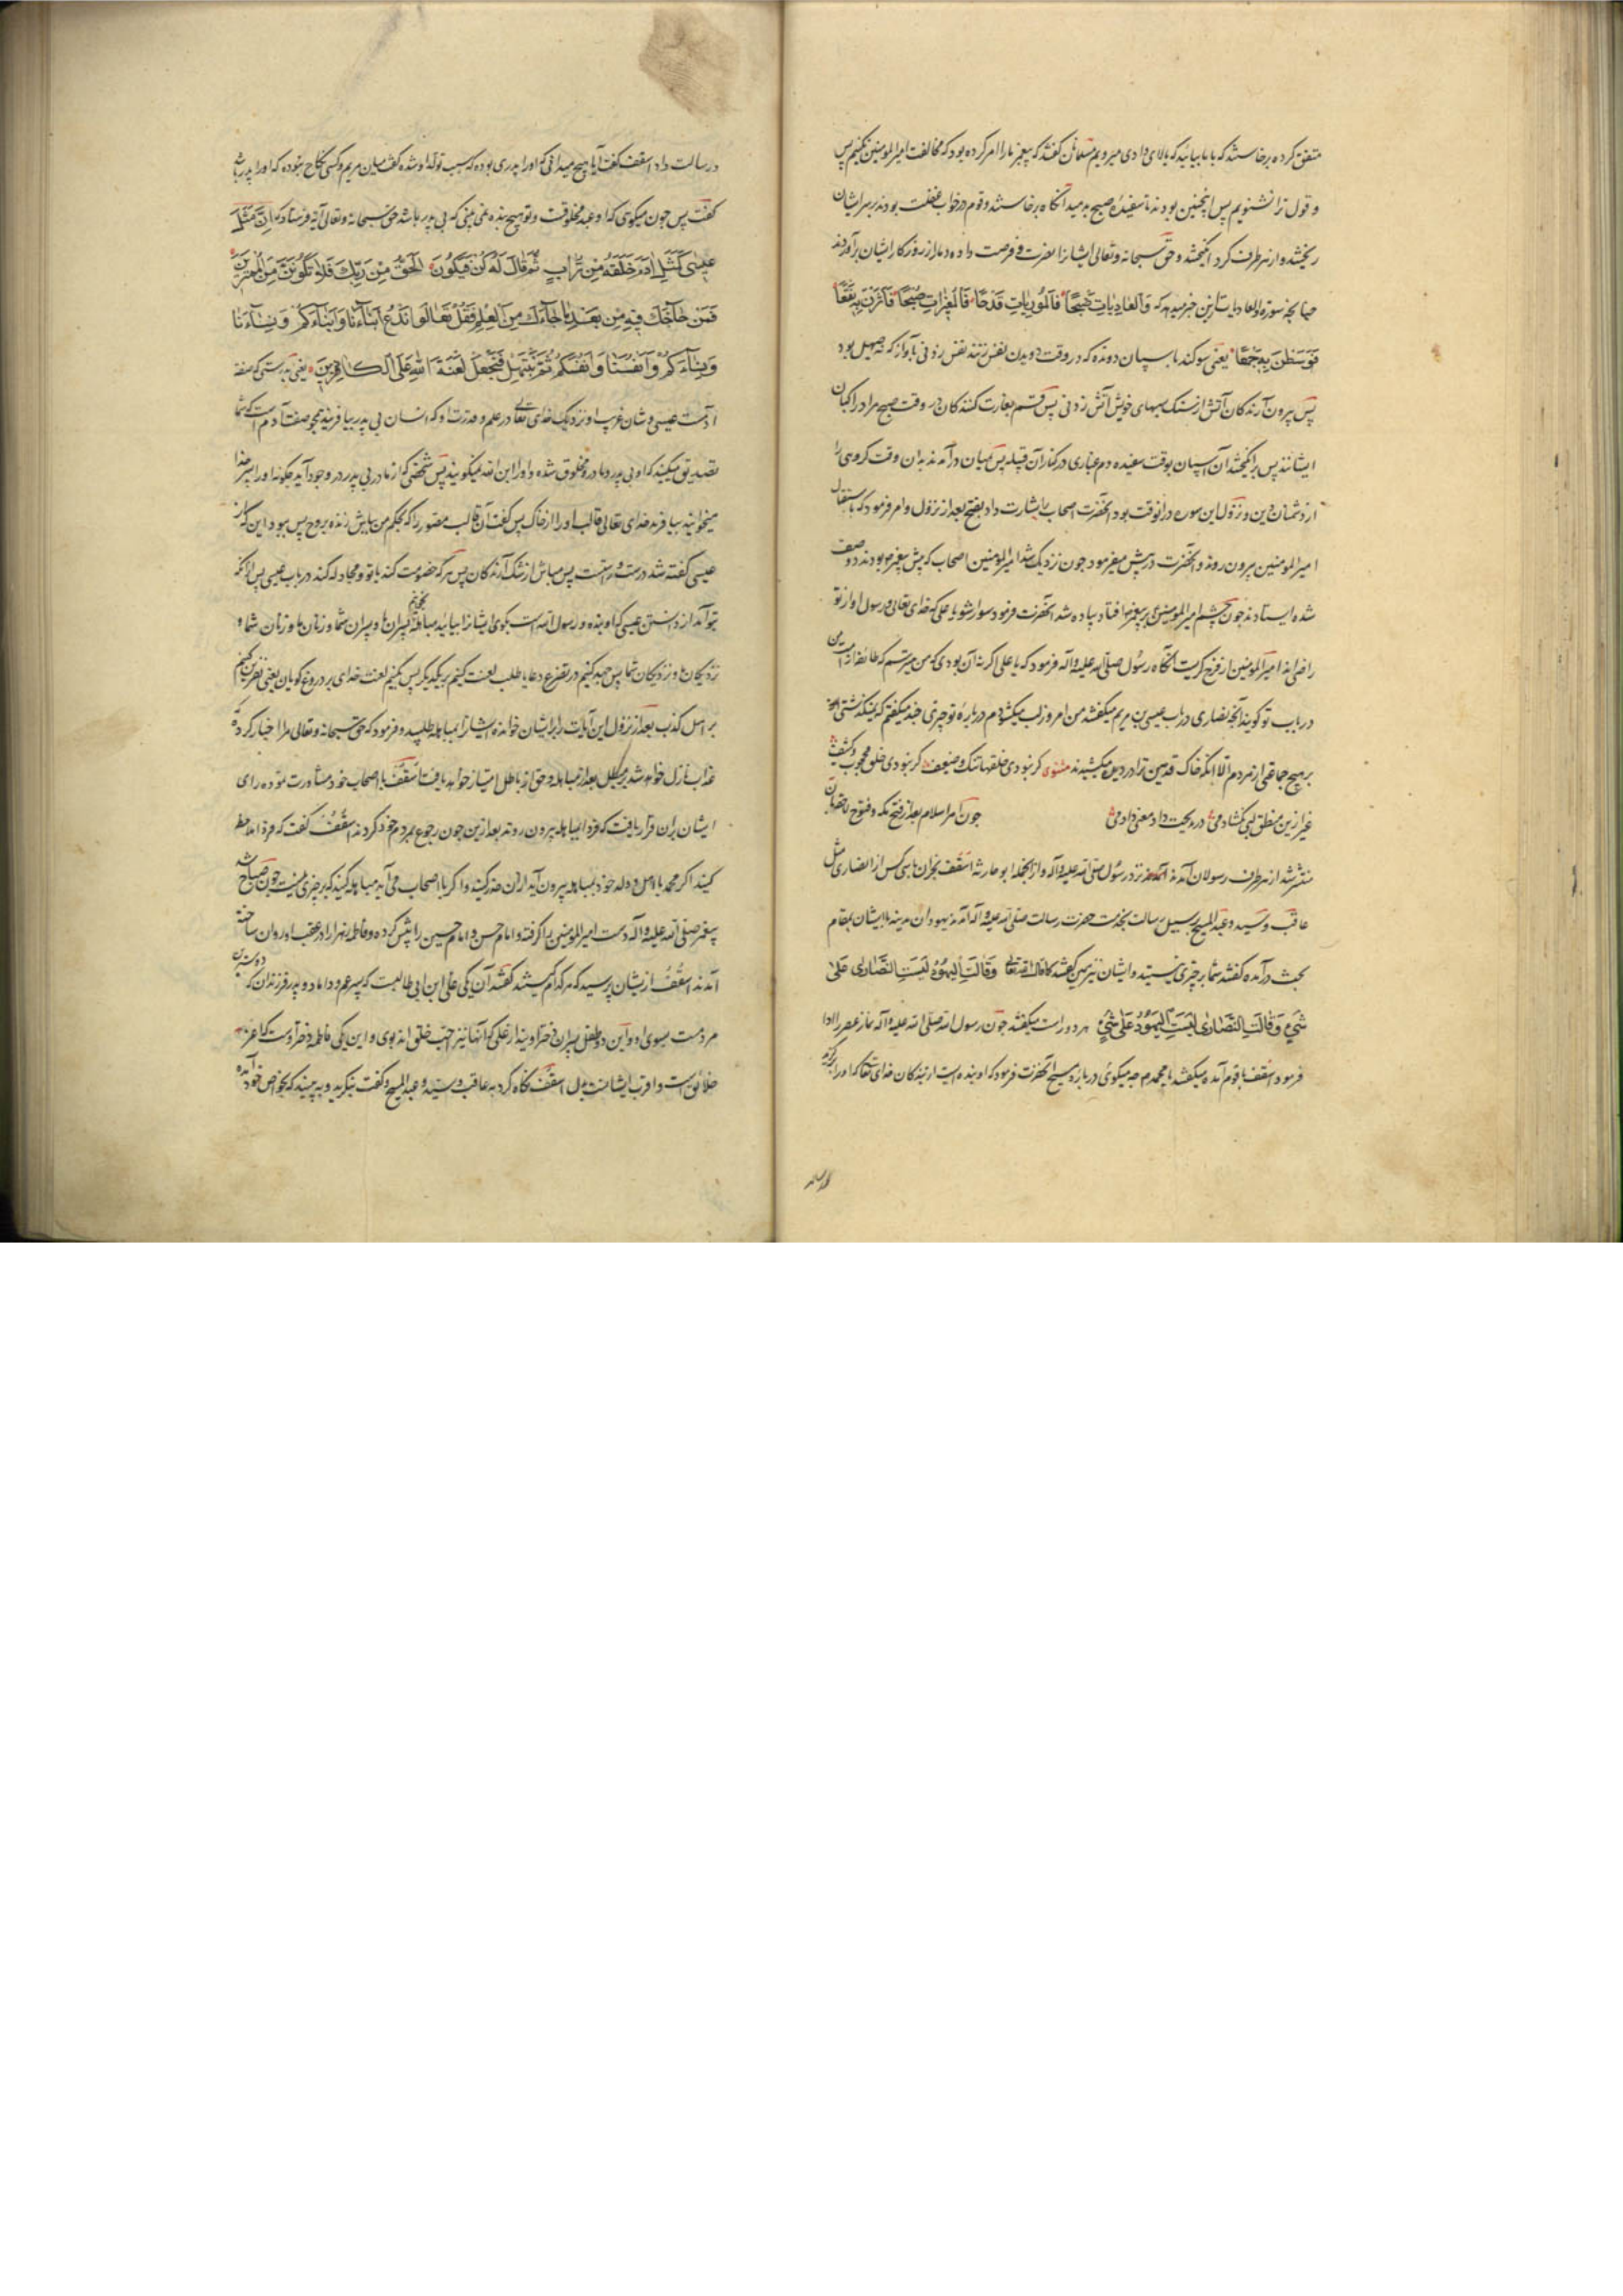 متفق کرده برخاستند که با ما بیائید که بالای وادی میرویم مسلمانان گفتند که پیغمبر ما را امر کرده بود که مخالفت امیرالمومنین نکنیم پس
و قول ترا نشنویم پس اینچنین بودند تا سفیده صبح بدمید آنگاه برخاستند و قوم در خواب غفلت بودند بر سر ایشان
ریختند و از هر طرف گرد انگیختند و حق سبحانه و تعالی ایشانرا نصرت و فرصت داده دمار از روزگار ایشان برآوردند
چنانچه سوره والعادیات ازین خبر میدهد که وَالعَادِیَاتِ ضَبْحًا فَالمُورِیَاتِ قَدْحًا فَالمُغِیرَاتِ صُبْحًا فَاَثَرْنَ بِهِ نَقْعًا
فَوَسَطْنَ بِهِ جَمْعًا یعنی سوکند باسپان دونده که در وقت دویدن نفس زنند نفس زدنی بآواز که نه صهیل بود
پس بیرون آرندکان آتش از سنک بسمهای خویش آتش زدنی پس قسم بغارت کنندکان در وقت صبح مراد راکبان
ایشانند پس برانکیختند آن اسپان بوقت سفیده دم غباری در کنار آن قبیله پس بمیان درآمدند بدان وقت کروهی را
از دشمنان دین و نزول این سوره در آنوقت بود آنحضرت اصحاب را بشارت داد بفتح بعد از نزول و امر فرمود که باستقبال
امیرالمومنین بیرون روند و آنحضرت در پیش میفرمود چون نزدیک شد امیرالمومنین اصحاب که پیش پیغمبر بودند دو صف
شده ایستادند چون چشم امیرالمومنین بر پیغمبر افتاد پیاده شد آنحضرت فرمود سوار شو یا علی که خدای تعالی و رسول او از تو
راضی اند امیرالمومنین از فرح کریست آنگاه رسول صلی الله علیه و آله فرمود که یا علی اکر نه آن بودی که من میترسم که طائفه از امت من
در باب تو کویند آنچه نصاری در باب عیسی بن مریم میکفتند من امروز لب میکشودم درباره تو چیزی چند میکفتم که نمیکذشتی
بر هیچ جماعتی از مردم الا آنکه خاک قدمین ترا در دیده میکشیدند مثنوی کر نبودی خلقها تنک و ضعیف کر نبودی خلق محجوب و کثیف
غیر ازین منطق لبی بکشادمی در مدیحت داد معنی دادمی چون امر اسلام بعد از فتح مکه و فتوح
منتشر شد از هر طرف رسولان آمدند نزد رسول صلی الله علیه و آله و از آنجمله ابو حارثه اسقف نجران با سی کس از نصاری مثل
عاقب و سید و عبدالمسیح بر سبیل رسالت بخدمت حضرت رسالت صلی الله علیه و آله آمدند یهودان مدینه با ایشان بمقام
بحث درآمده کفتند شما بر چیزی نیستید و ایشان نیز همین کفتند کما قال الله تعالی وَقَالَتِ الیَهُودُ لَیْسَتِ النَّصَارٰی عَلٰی
شَیْءٍ وَقَالَتِ النَّصَارٰی لَیْسَتِ الیَهُودُ عَلٰی شَیْءٍ هر دو راست میکفتند چون رسول الله صلی الله علیه و آله نماز عصر را ادا
فرمود اسقف با قوم آمده میکفتند یا محمد چه میکوئی درباره مسیح آنحضرت فرمود که او بنده ایست از بندکان خدای تعالی که او را برکزیده
در رسالت داد اسقف کفت آیا هیچ میدانی که او را پدری بوده که سبب تولد او شده کفت میان مریم و کسی نکاح نبوده که او را پدر باشد
کفت پس چون میکوی که او عبد مخلوقست و تو هیچ بنده نمی بینی که بی پدر باشد حق سبحانه و تعالی آیه فرستاد که اِنَّ مَثَلَ
عِیسٰی کَمَثَلِ اٰدَمَ خَلَقَهُ مِنْ تُرَابٍ ثُمَّ قَالَ لَهُ کُنْ فَیَکُونُ الْحَقُّ مِنْ رَبِّکَ فَلَا تَکُونَنَّ مِنَ المُمْتَرِینَ
فَمَنْ حَاجَّکَ فِیهِ مِنْ بَعْدِ مَا جَاءَکَ مِنَ العِلْمِ فَقُلْ تَعَالَوا نَدْعُ اَبْنَاءَنَا وَاَبْنَاءَکُمْ وَنِسَاءَنَا
وَنِسَاءَکُمْ وَاَنْفُسَنَا وَاَنْفُسَکُمْ ثُمَّ نَبْتَهِلْ فَنَجْعَلْ لَعْنَةَ اللهِ عَلَی الکَاذِبِینَ یعنی بدرستی که صفت
آدمست عیسی و شان غریب او نزدیک خدای تعالی در علم و قدرت او که انسان بی پدر بیافریند همچو صفت آدم است که شما
تصدیق میکنید که او بی پدر و مادر مخلوق شده و او را ابن الله نمیکویند پس شخصی که از مادر بی پدر در وجود آید چکونه او را پسر خدا
میخوانید بیافرید خدای تعالی قالب او را از خاک پس کفت آن قالب مصور را که بحکم من باش زنده بروح پس ببود این که از
عیسی کفته شد درست و راست پس مباش از شک آرندکان پس هرکه خصومت کند با تو و مجادله کند در باب عیسی پس از آنکه
بتو آمد از دانستن عیسی که او بنده و رسول الله است بکوی ایشانرا بیائید تا بخوانیم پسران ما و پسران شما و زنان ما و زنان شما و
نزدیکان ما و نزدیکان شما پس جهد کنیم در تضرع و دعا یا طلب لعنت کنیم بر یکدیکر پس بکنیم لعنت خدای بر دروغ کویان یعنی نفرین کنیم
بر اهل کذب بعد از نزول این آیات را بر ایشان خوانده ایشانرا بمباهله طلبید و فرمود که حق سبحانه و تعالی مرا اخبار کرد که
عذاب نازل خواهد شد بر مبطل بعد از مباهله و حق از باطل امتیاز خواهد یافت اسقف با اصحاب خود مشاورت نموده رای
ایشان بران قرار یافت که فردا بمباهله بیرون روند بعد ازین چون رجوع بمردم خود کردند اسقف کفت که فردا ملاحظه
کنید اکر محمد با اهل و ولد خود بمباهله بیرون آید از آن حذر کنید و اکر با اصحاب می آید مباهله کنید که بر چیزی نیست چون صباح شد
پیغمبر صلی الله علیه و آله دست امیرالمومنین را کرفته و امام حسن و امام حسین را پیش کرده و فاطمه زهرا را در عقب او روان ساخته
آمدند اسقف از ایشان پرسید که هر کدام کیستند کفتند آن یکی علی ابن ابی طالبست که پسر عم و داماد و پدر فرزندان که دوسترین
مردمست بسوی او و این دو طفل پسران دختر اویند از علی که آنها نیز احب خلق اند بوی و این یکی فاطمه دختر اوست که اعز
خلائق است و اقرب ایشانست بدل اسقف نکاه کرد به عاقب و سید و عبدالمسیح و کفت بنکرید و به بینید که بخواص خود آمده